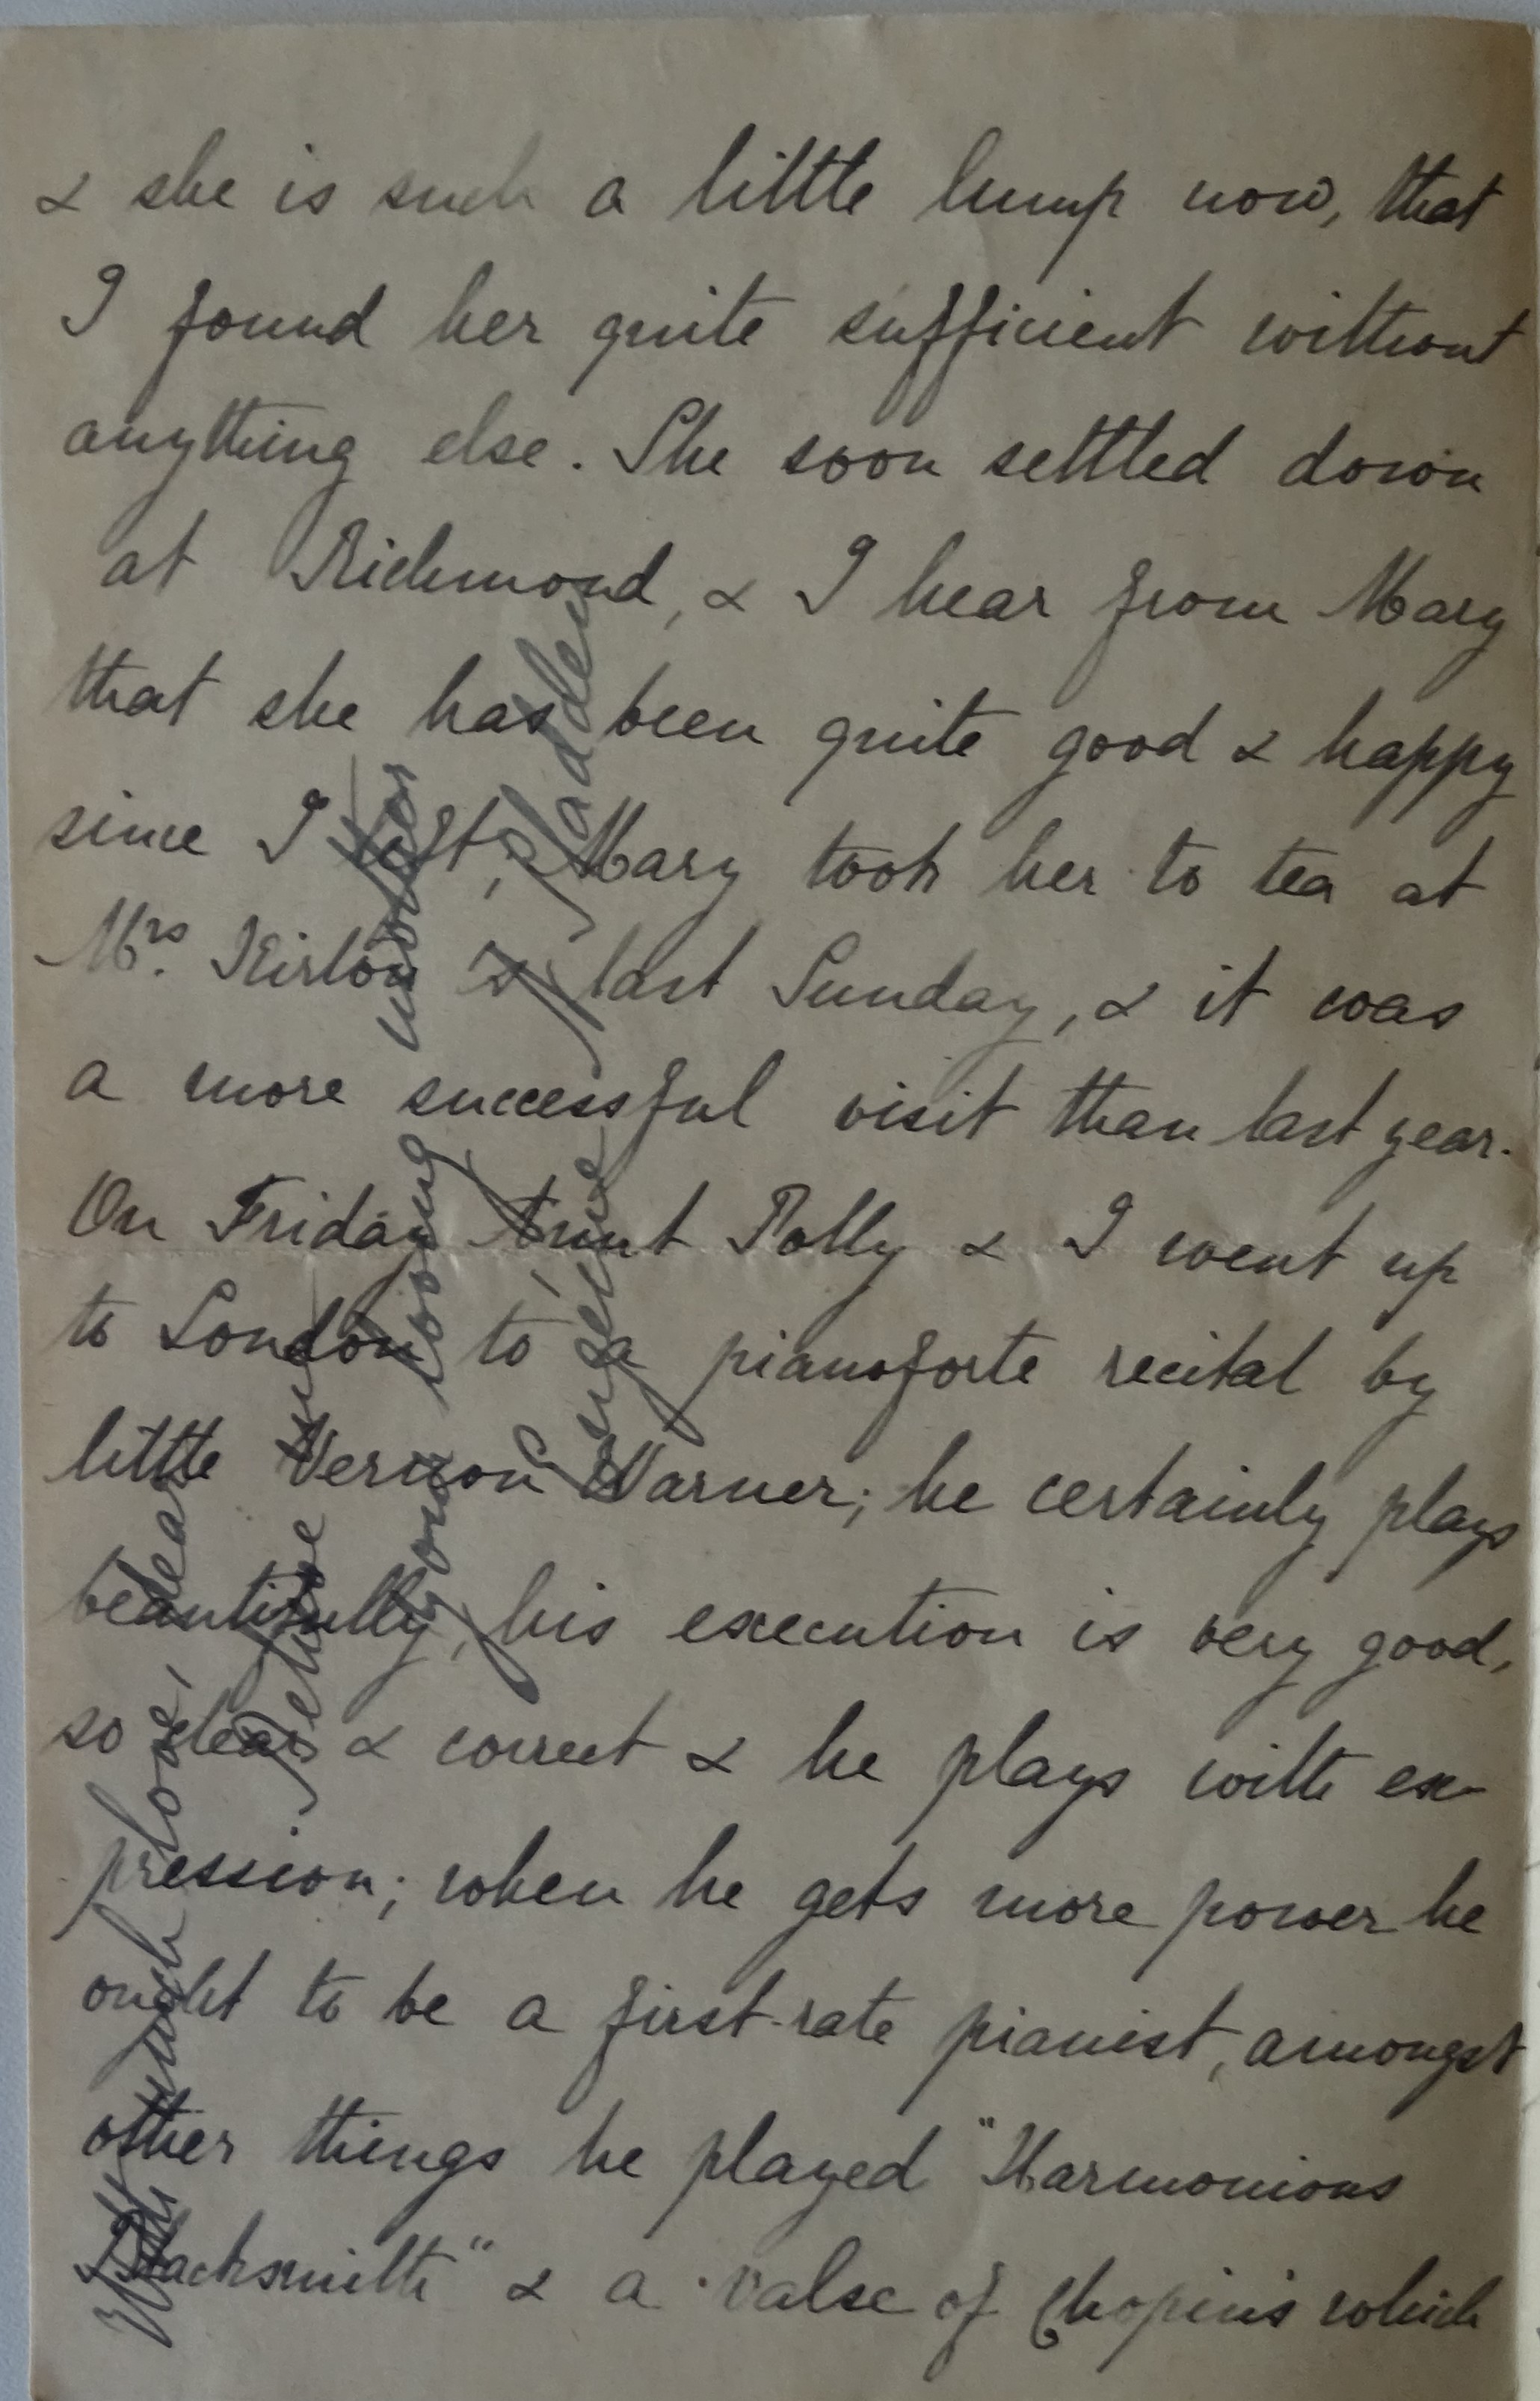 & she is such a little lump now, that
I found her quite sufficient without
anything else. She soon settled down
at Richmond, & I hear from Mary
that she has been quite good & happy
since I left, Mary took her to tea at
Mrs. Kirton last Sunday, & it was
a more successful visit than last year.
On Friday Aunt Polly & I went up
to London to a pianoforte recital by
little Vernon Warner; he certainly plays
beautifully, his execution is very good,
so clear & correct & he plays with ex-
pression; when he gets more power he
ought to be a first-rate pianist, amongst
other things he played "Harmonious
Blacksmith" & a valse of Chopin's which
With much love, dear
Believe me
your loving mother
Angelina Madden